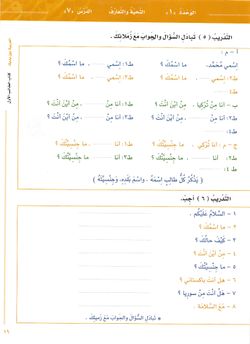 الوَحدة «١» التَّحِيَّة والتَّعارُف الدَّرْس «٧»
التَّدريبُ (٥) تَبادَلِ السُّؤالَ والجَوابَ مَعَ زُمَلائِكَ.
أ - م :
اِسْمِي مُحَمَّد. ما اسْمُكَ ؟ ط١: اِسْمِي ... ما اسْمُكَ ؟
ط٢: اِسْمِي ... ما اسْمُكَ ؟ ط٣:
ط٤:
ب - م: أنا مِنْ تُرْكِيا . مِنْ أَيْنَ أَنْتَ ؟ ط١: أنا مِنْ ... مِنْ أَيْنَ أَنْتَ ؟
ط٢: أنا ... مِنْ أَيْنَ أَنْتَ ؟ ط٣: أنا ... مِنْ أَيْنَ أَنْتَ ؟
ط٤:
ج - م : أنا ... ما جِنْسِيَّتُكَ ؟ ط١: أنا ... ما جِنْسِيَّتُكَ ؟
ط٢: أنا ... ما جِنْسِيَّتُكَ ؟ ط٣: أنا ... ما جِنْسِيَّتُكَ ؟
ط٤:
( يَذْكُرُ كُلُّ طالِبٍ اسْمَهُ ، واسْمَ بَلَدِهِ، وجِنْسِيَّتَهُ )
التَّدريبُ (٦) أَجِبْ.
١ - السَّلامُ عَلَيْكُم .
٢ - ما اسْمُكَ ؟
٣ - كَيْفَ حالُكَ ؟
٤ - مِنْ أَيْنَ أَنْتَ ؟
٥ - ما جِنْسِيَّتُكَ ؟
٦ - هَلْ أَنْتَ باكِستانِيٌّ ؟
٧ - هَلْ أَنْتَ مِنْ سوريا ؟
٨ - مَعَ السَّلامَة .
* تَبادَلِ السُّؤالَ والجَوابَ مَعَ زَمِيلِكَ .
كتاب الطالب الأول
١٩